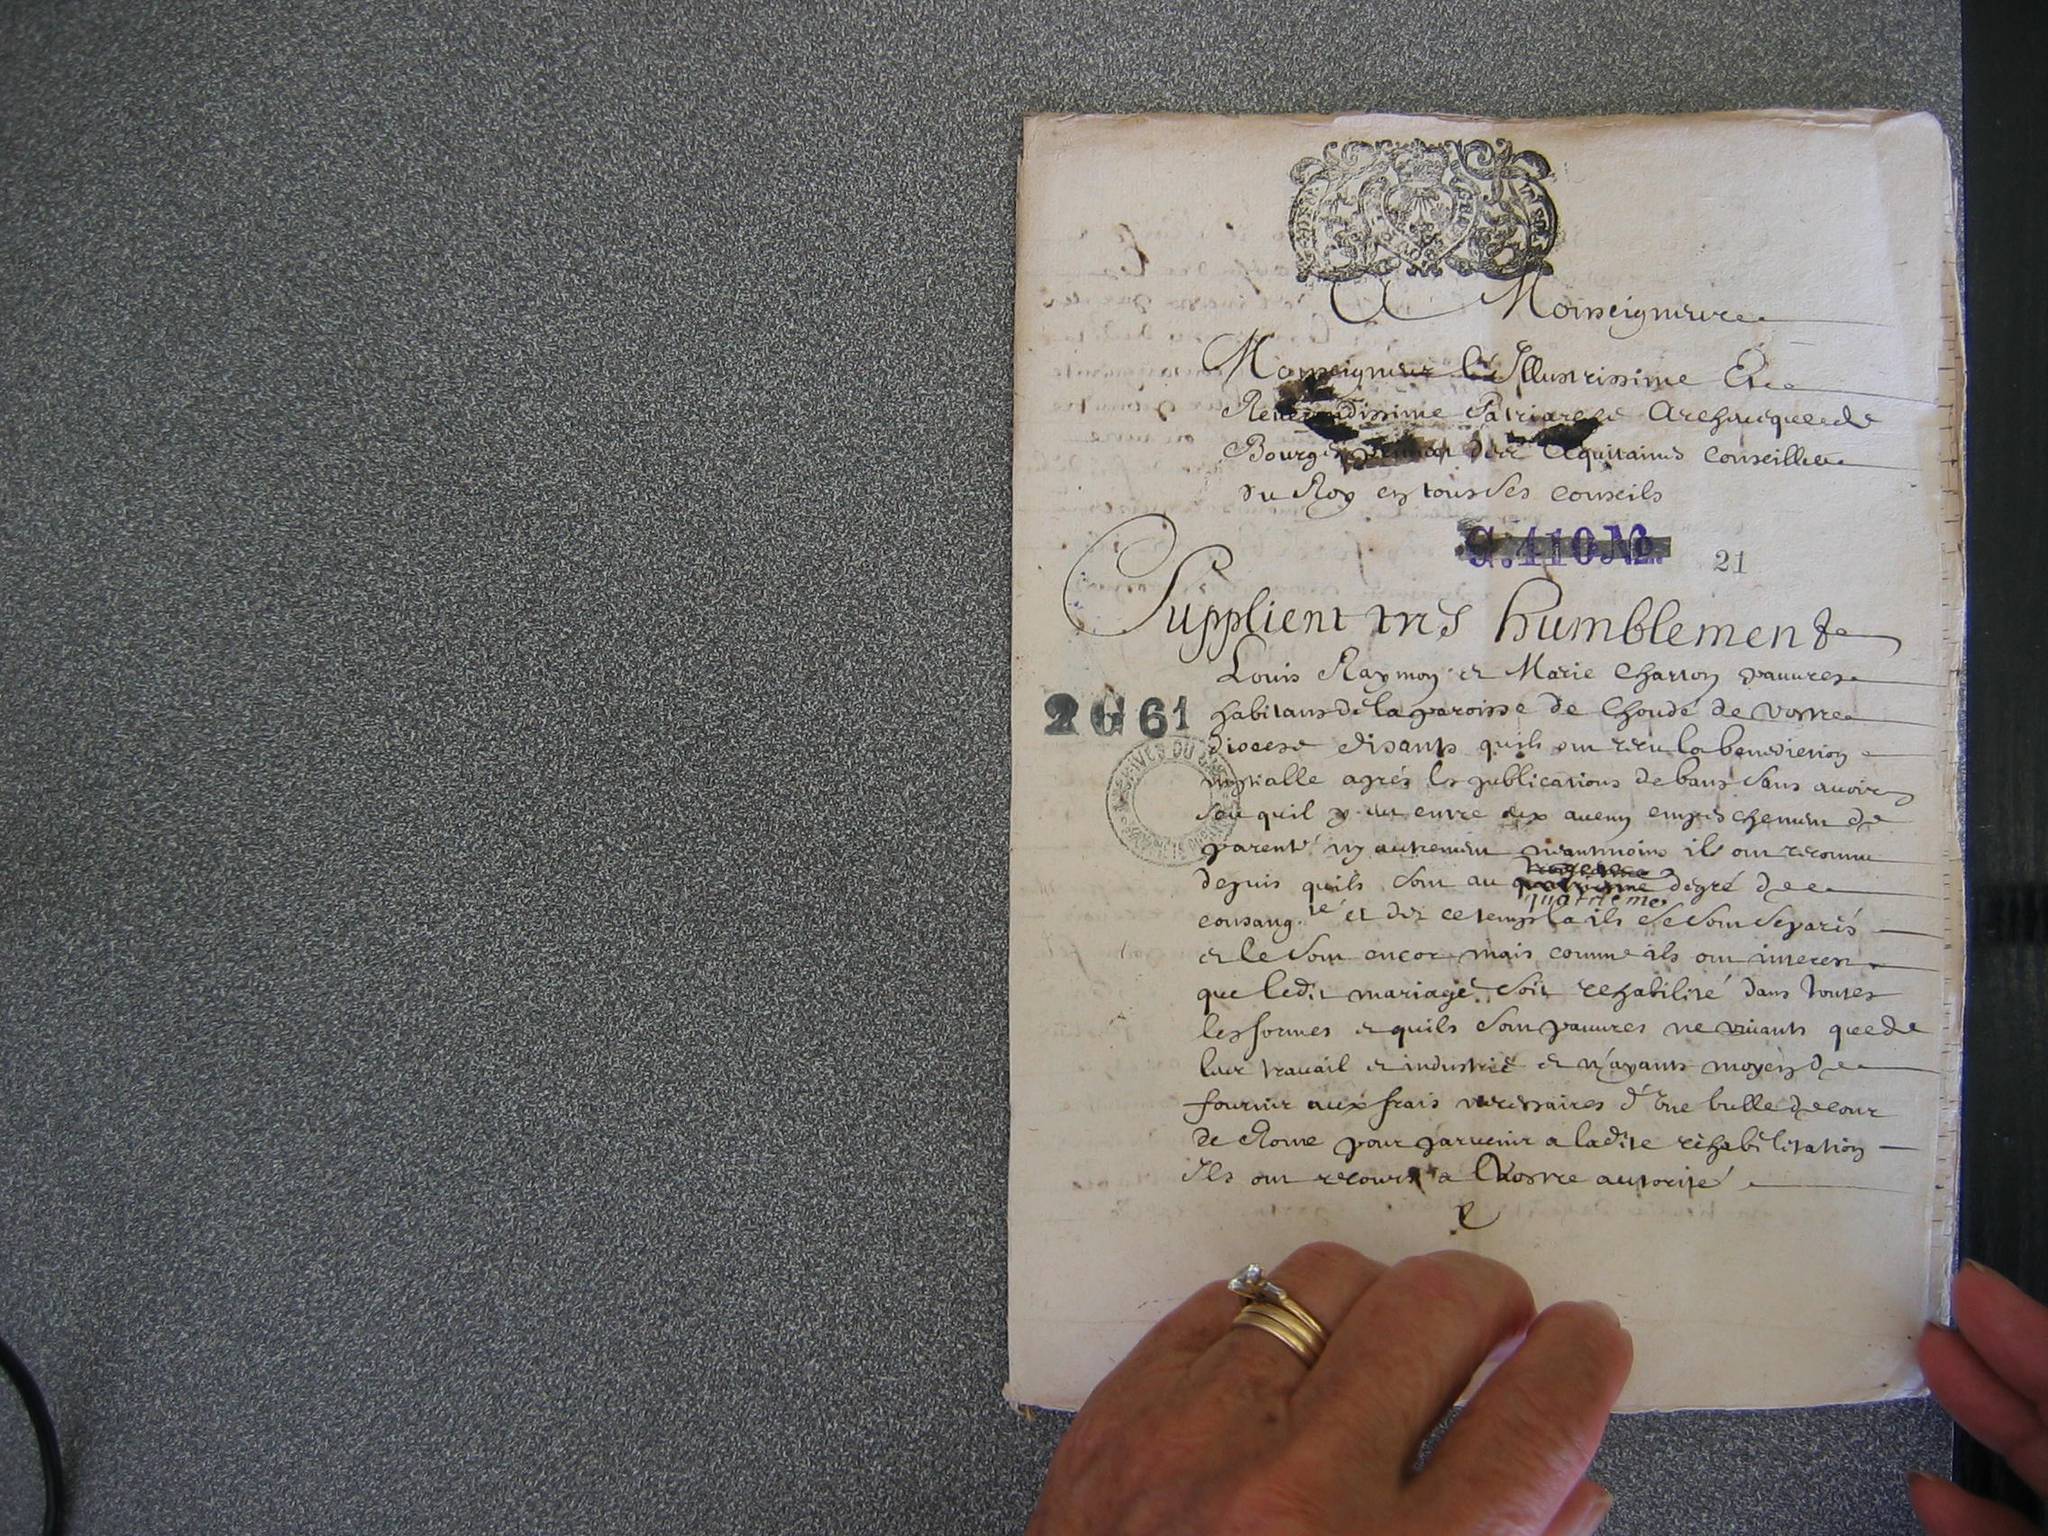 A Monseigneur
Monseigneur l'Illustrissime Et
Reverendissime Patriarche Archevequede
Bourges primat des Aquitaines Conseiller
du Roy en tous ses conseils
C. 410 No.
21
Supplient tres humblement
Louis Raymon et Marie Charton pauvres
2 G 61
habitans de la paroisse de Choudé de vostre
ARCHIVES DU CHER
diocese disants quils ont receu la benediction
nuptialle aprés les publications de bans sans avoir
sçu quil y eut entre eux aucun empeschement de
parenté ny autrement neantmoins ils ont reconnu
depuis quils sont au degré de
quatrieme
consang.té et dez ce temps la ils se sont separés
et le sont encor mais comme ils ont interest
que ledit mariage soit rehabilité dans toutes
les formes et quils sont pauvres ne vivants que de
leur travail et industrie et n'ayants moyen de
fournir aux frais necessaires d'une bulle de cour
de Rome pour parvenir a ladite rehabilitation
Ils ont recours a Vostre autorité